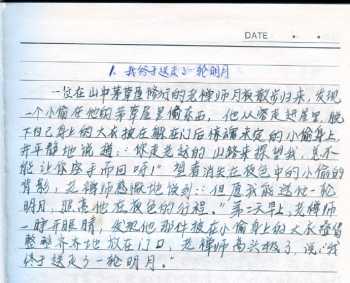 DATE
1. 我终于送走了一轮明月
一位在山中茅草屋修行的老禅师月夜散步归来，发现
一个小偷在他的茅草屋里偷东西，他从容走进屋里，脱
下自己身上的大衣披在躲在门后惊魂未定的小偷身上
并平静地说道：：你走老远的山路来探望我，总不
能让你空手而回呀！”望着消失在夜色中的小偷的
背影，老禅师感慨地说到：：但愿我能送他一轮
明月，照亮他在夜色的行程。”第二天早上，老禅师
一睁开眼睛，发现他那件披在小偷身上的大衣叠得
整整齐齐地放在门口，老禅师高兴极了，说，“我
终于送走了一轮明月。”